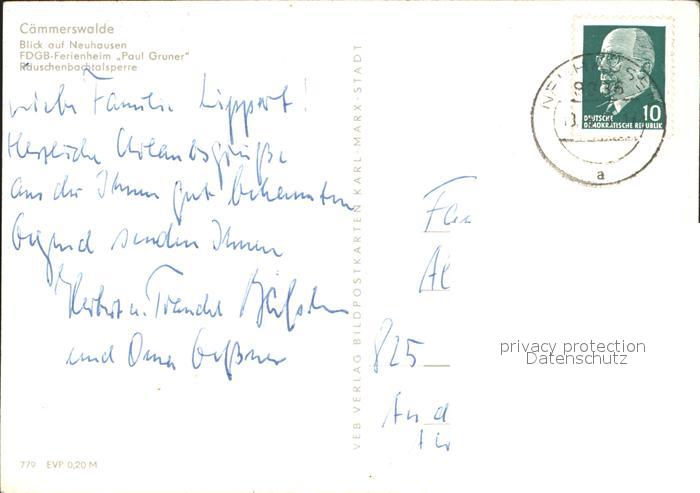 Cämmerswalde
Blick auf Neuhausen
FDGB-Ferienheim „Paul Gruner"
Rauschenbachtalsperre
Liebe Familie Lippert!
Herzliche Urlaubsgrüße
aus der Ihnen gut bekannten
Gegend senden Ihnen
Herbert u. Traudel
und Oma
779 EVP 0,20 M
VEB VERLAG BILDPOSTKARTEN KARL-MARX-STADT
DEUTSCHE
DEMOKRATISCHE REPUBLIK
10
a
Fam
Al
825
privacy protection
Datenschutz